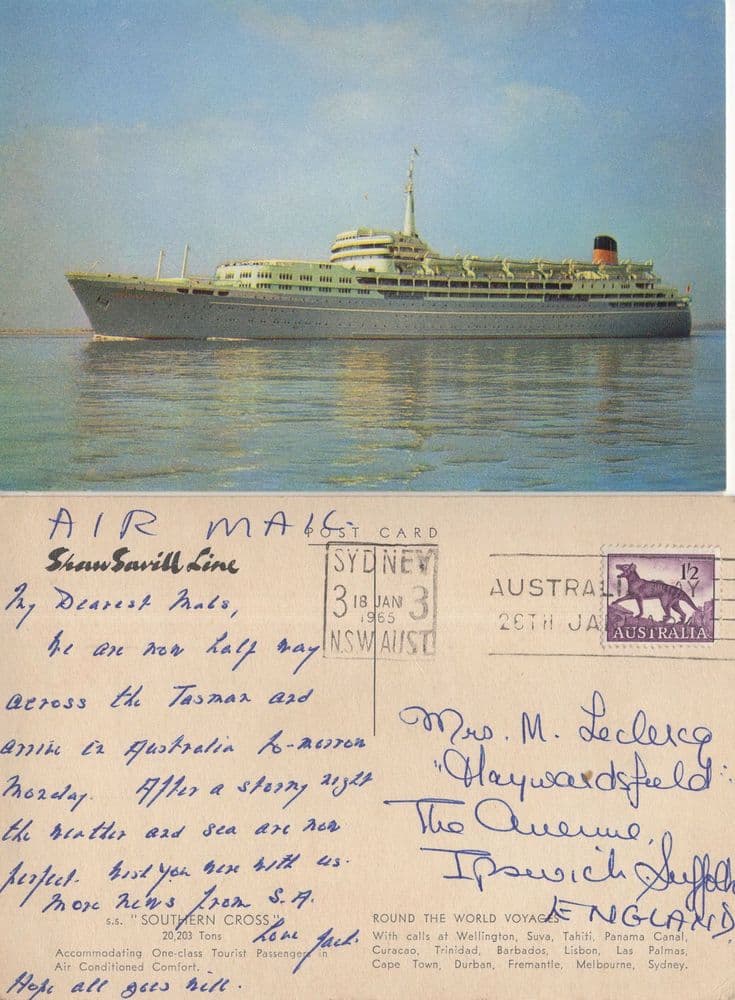 AIR MAIL
POST CARD
Shaw Savill Line
SYDNEY
3 18 JAN 3
1965
N.S.W. AUST
AUSTRALIA DAY
26TH JA
1'2
AUSTRALIA
My Dearest Mabs,
We are now half way
across the Tasman and
arrive in Australia to-morrow
Monday. After a stormy night
the weather and sea are now
perfect. Wish you were with us.
More news from S.A.
Love Jack.
Hope all goes well.
Mrs. M. Leclercq
"Haywardsfield"
The Avenue,
Ipswich, Suffolk
ENGLAND
s.s. "SOUTHERN CROSS"
20,203 Tons
Accommodating One-class Tourist Passengers in
Air Conditioned Comfort.
ROUND THE WORLD VOYAGES
With calls at Wellington, Suva, Tahiti, Panama Canal,
Curacao, Trinidad, Barbados, Lisbon, Las Palmas,
Cape Town, Durban, Fremantle, Melbourne, Sydney.